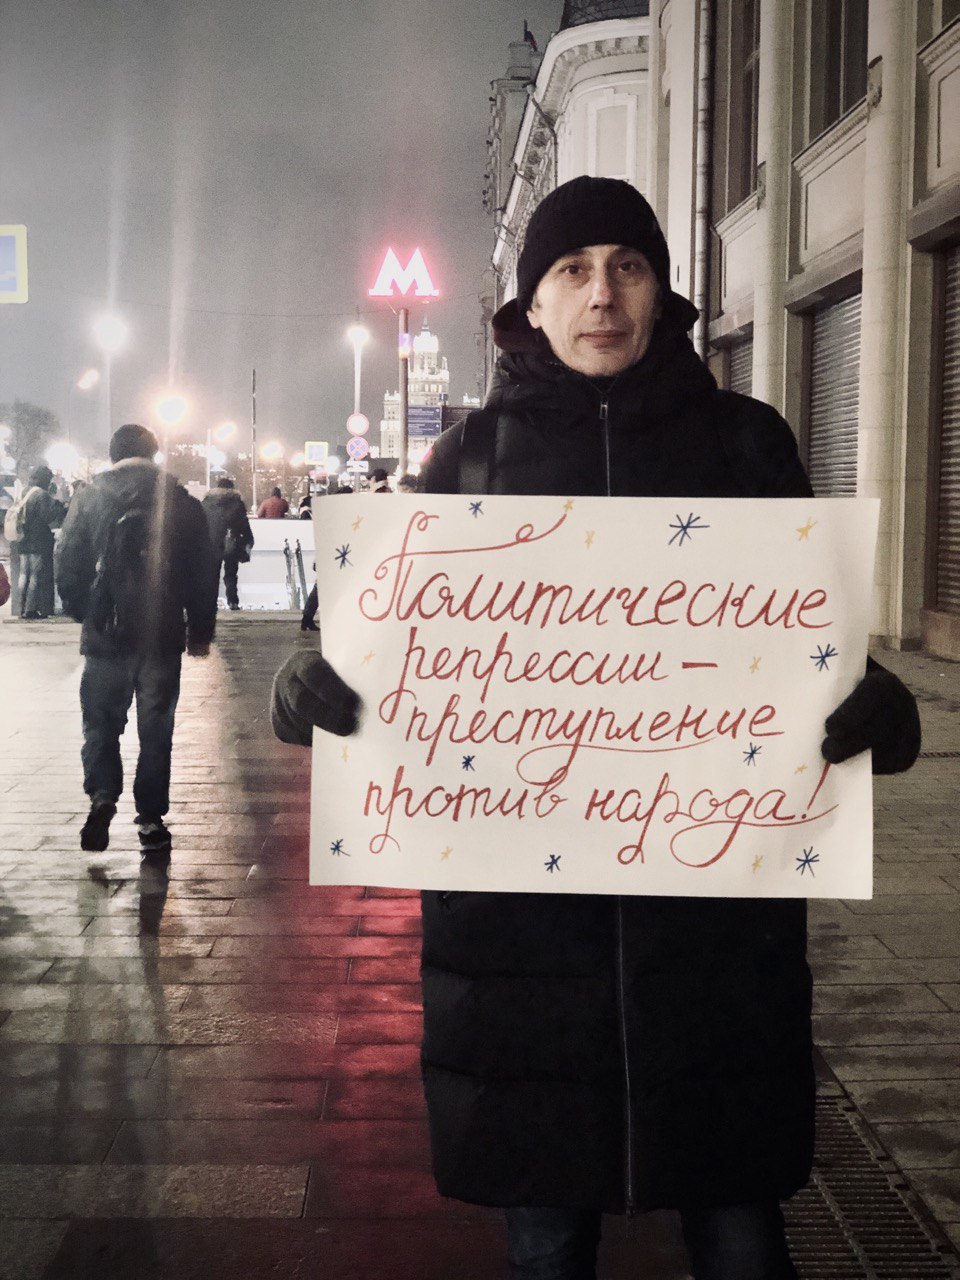 М
Политические
репрессии —
преступление
против народа!